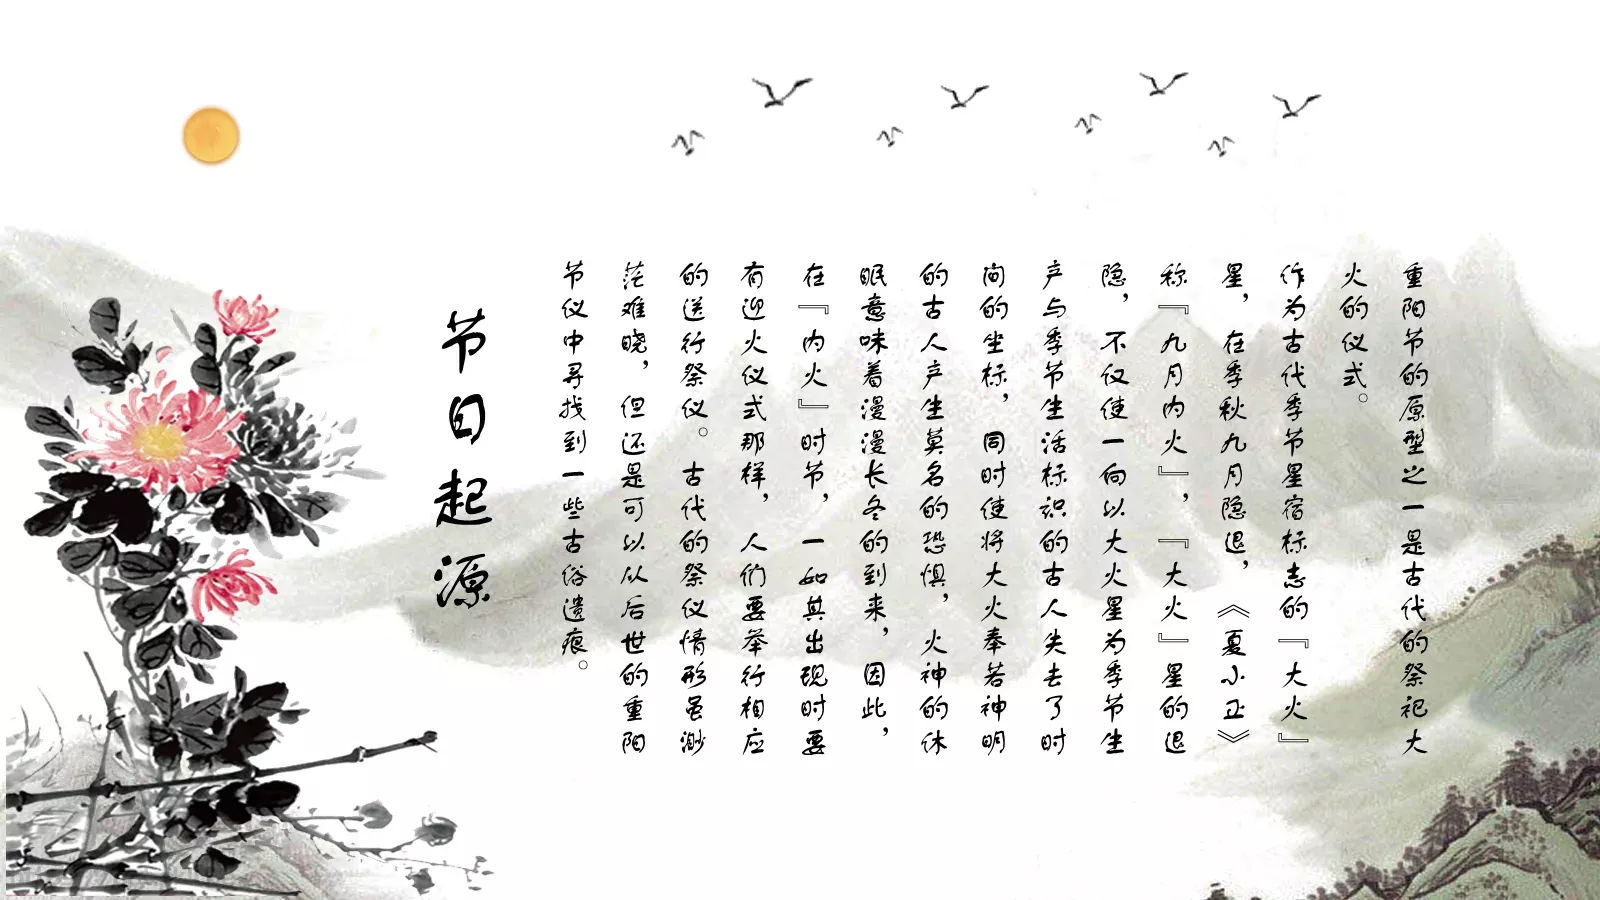 重阳节的原型之一是古代的祭祀大
火的仪式。
作为古代季节星宿标志的『大火』
星，在季秋九月隐退，《夏小正》
称『九月内火』，『大火』星的退
隐，不仅使一向以大火星为季节生
产与季节生活标识的古人失去了时
间的坐标，同时使将大火奉若神明
的古人产生莫名的恐惧，火神的休
眠意味着漫漫长冬的到来，因此，
在『内火』时节，一如其出现时要
有迎火仪式那样，人们要举行相应
的送行祭仪。古代的祭仪情形虽渺
茫难晓，但还是可以从后世的重阳
节仪中寻找到一些古俗遗痕。
节日起源